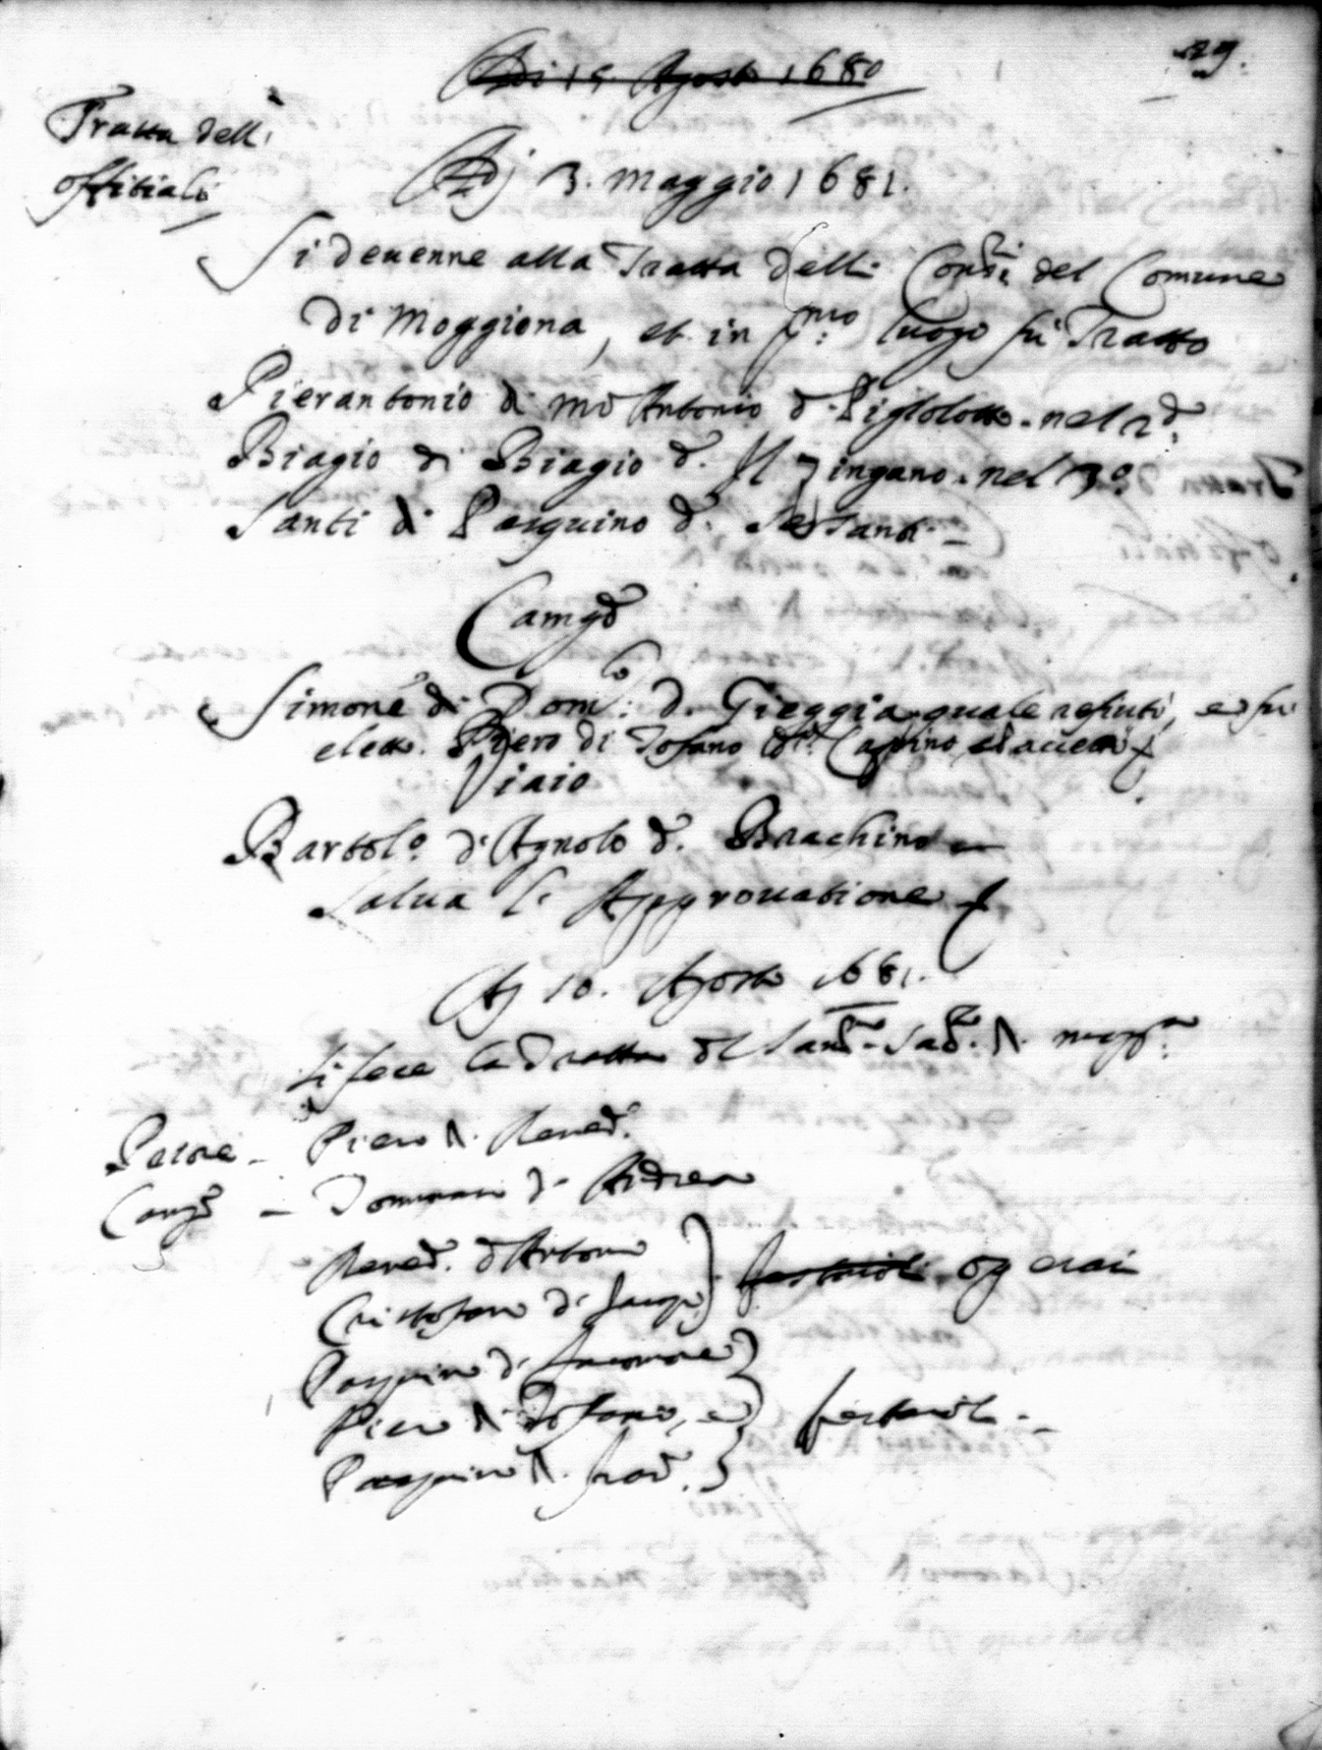 29.
Adi 15 Agosto 1680
Tratta dell'
offitiali
Adj 3. Maggio 1681.
Si devenne alla Tratta delli Consri del Comune
di Moggiona, et in pmo: luogo fu Tratto
Pierantonio di Mo Antonio d. Piglolotto. nel 2do:
Biagio di Biagio do. Il zingano. nel 3o.
Santi di Pasquino do. Santi
Camgo
Simone di Domco: d. Gieggia quale refiutò, et fu
eletto. Piero di Tofano do. Cappino
Viaio
Bartolo. d'Agnolo do. Brachino
Salva l' Approvatione
Aj 10. Agosto 1681.
Si fece la Tratta
Piero di Bened.
Camgo - Tommaso d' Andrea
Bened. d'Antonio
Cristofano di operai
Pasquino di
Piero di Tofano, e festaioli
Pasquino di